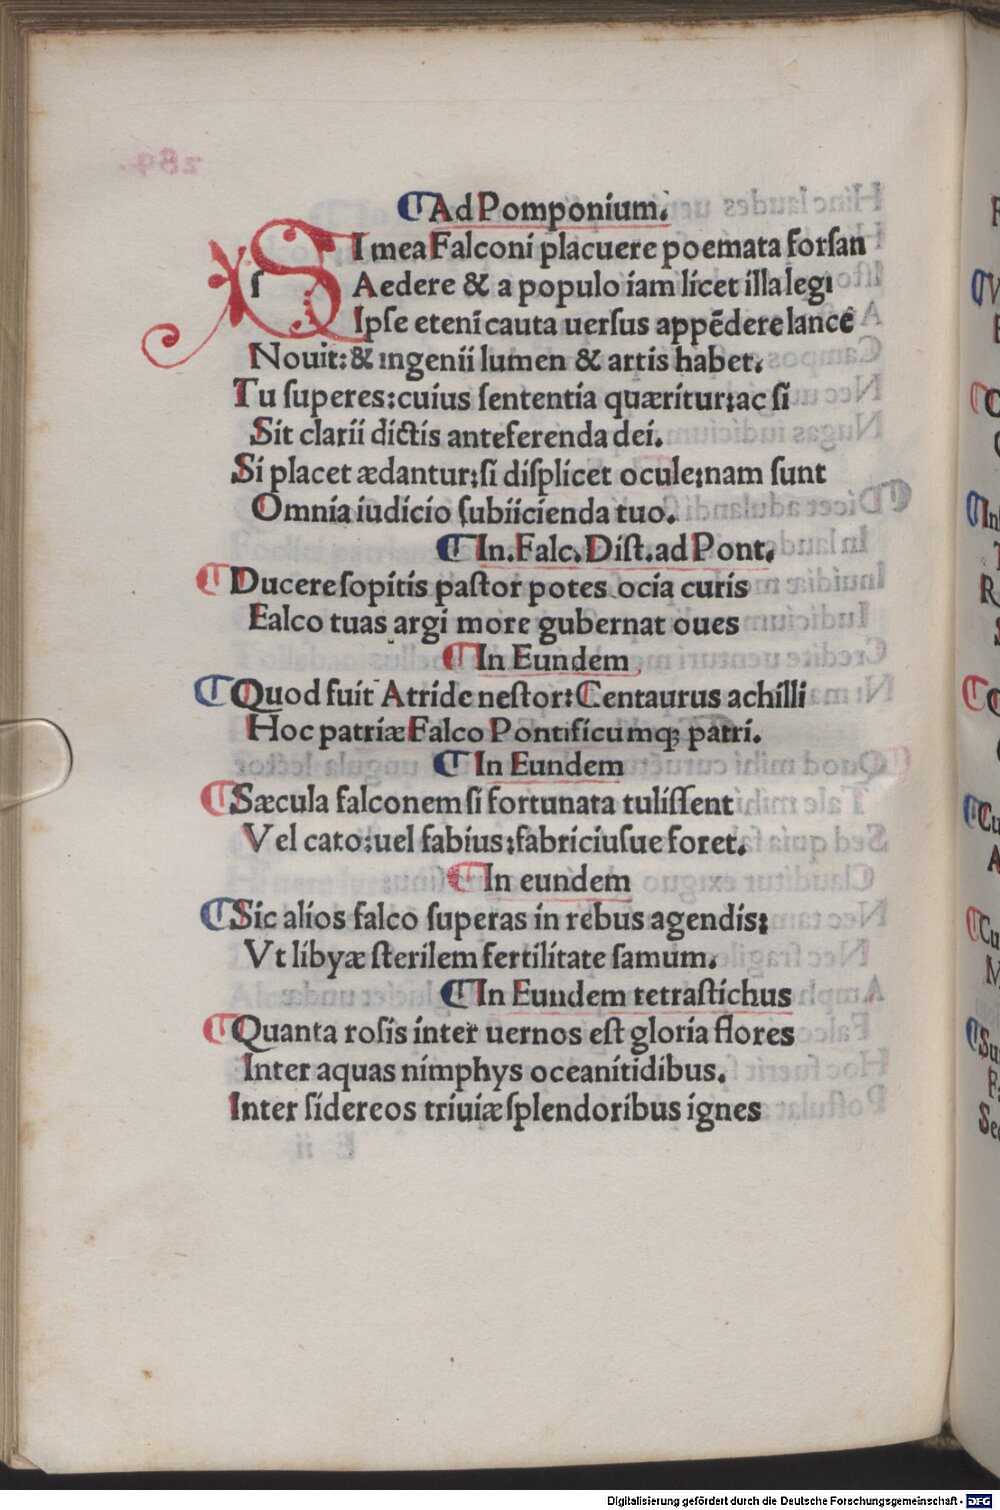 Ad Pomponium.
SI mea Falconi placuere poemata forsan
Aedere & a populo iam licet illa legi
Ipse eteni cauta uersus appēdere lancē
Nouit: & ingenii lumen & artis habet.
Tu superes: cuius sententia quæritur: ac si
Sit clarii dictis anteferenda dei.
Si placet ædantur: si displicet ocule: nam sunt
Omnia iudicio subiicienda tuo.
In. Falc. Dist. ad Pont.
Ducere sopitis pastor potes ocia curis
Falco tuas argi more gubernat oues
In Eundem
Quod fuit Atride nestor: Centaurus achilli
Hoc patriæ Falco Pontificumq; patri.
In Eundem
Sæcula falconem si fortunata tulissent
Vel cato: uel fabius: fabriciusue foret.
In eundem
Sic alios falco superas in rebus agendis:
Vt libyæ sterilem fertilitate samum.
In Eundem tetrastichus
Quanta rosis inter uernos est gloria flores
Inter aquas nimphys oceanitidibus.
Inter sidereos triuiæ splendoribus ignes
Digitalisierung gefördert durch die Deutsche Forschungsgemeinschaft - DFG